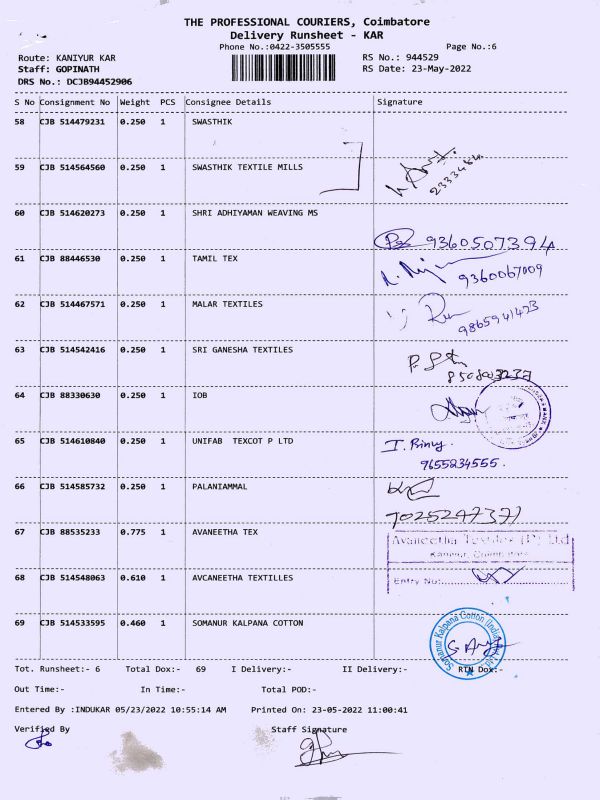 THE PROFESSIONAL COURIERS, Coimbatore
Delivery Runsheet - KAR
Phone No.:0422-3505555
Page No.:6
Route: KANIYUR KAR
RS No.: 944529
Staff: GOPINATH
RS Date: 23-May-2022
DRS No.: DCJB94452906
S No Consignment No Weight PCS Consignee Details Signature
58 CJB 514479231 0.250 1 SWASTHIK
59 CJB 514564560 0.250 1 SWASTHIK TEXTILE MILLS
60 CJB 514620273 0.250 1 SHRI ADHIYAMAN WEAVING MS
9360507394
61 CJB 88446530 0.250 1 TAMIL TEX
9360067009
62 CJB 514467571 0.250 1 MALAR TEXTILES
9865941423
63 CJB 514542416 0.250 1 SRI GANESHA TEXTILES
64 CJB 88330630 0.250 1 IOB
65 CJB 514610840 0.250 1 UNIFAB TEXCOT P LTD
9655234555.
66 CJB 514585732 0.250 1 PALANIAMMAL
7025247371
67 CJB 88535233 0.775 1 AVANEETHA TEX
Avaneetha Textiles (P) Ltd
Kaniyur, Coimbatore
68 CJB 514548063 0.610 1 AVCANEETHA TEXTILLES
Entry No:
69 CJB 514533595 0.460 1 SOMANUR KALPANA COTTON
Somanur Kalpana Cotton (India) Pvt Ltd
Tot. Runsheet:- 6 Total Dox:- 69 I Delivery:- II Delivery:- RTN Dox:-
Out Time:- In Time:- Total POD:-
Entered By :INDUKAR 05/23/2022 10:55:14 AM Printed On: 23-05-2022 11:00:41
Verified By Staff Signature